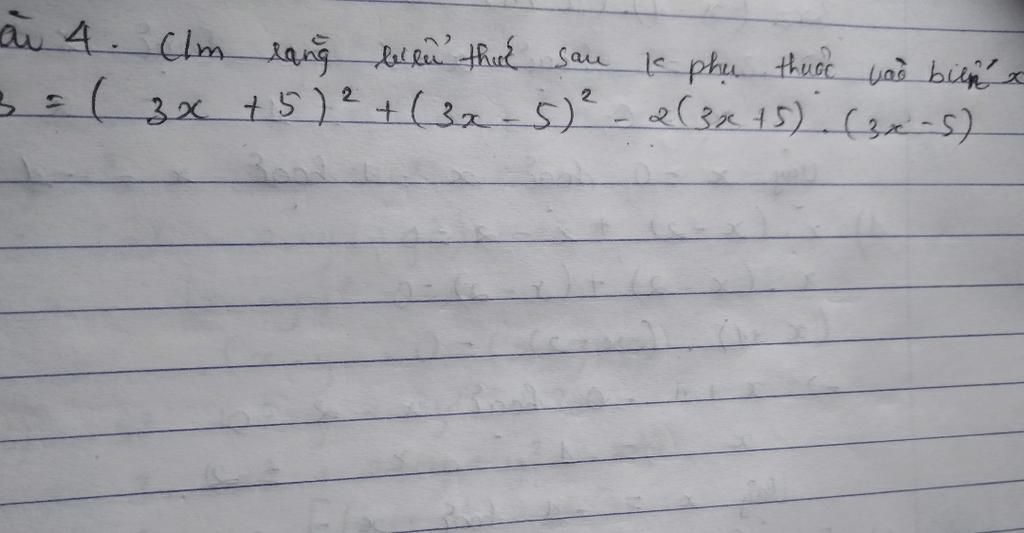 ài 4. C/m rằng biểu thức sau k phụ thuộc vào biến x
B = ( 3x + 5 )² + ( 3x - 5 )² - 2 ( 3x + 5 ) . ( 3x - 5 )